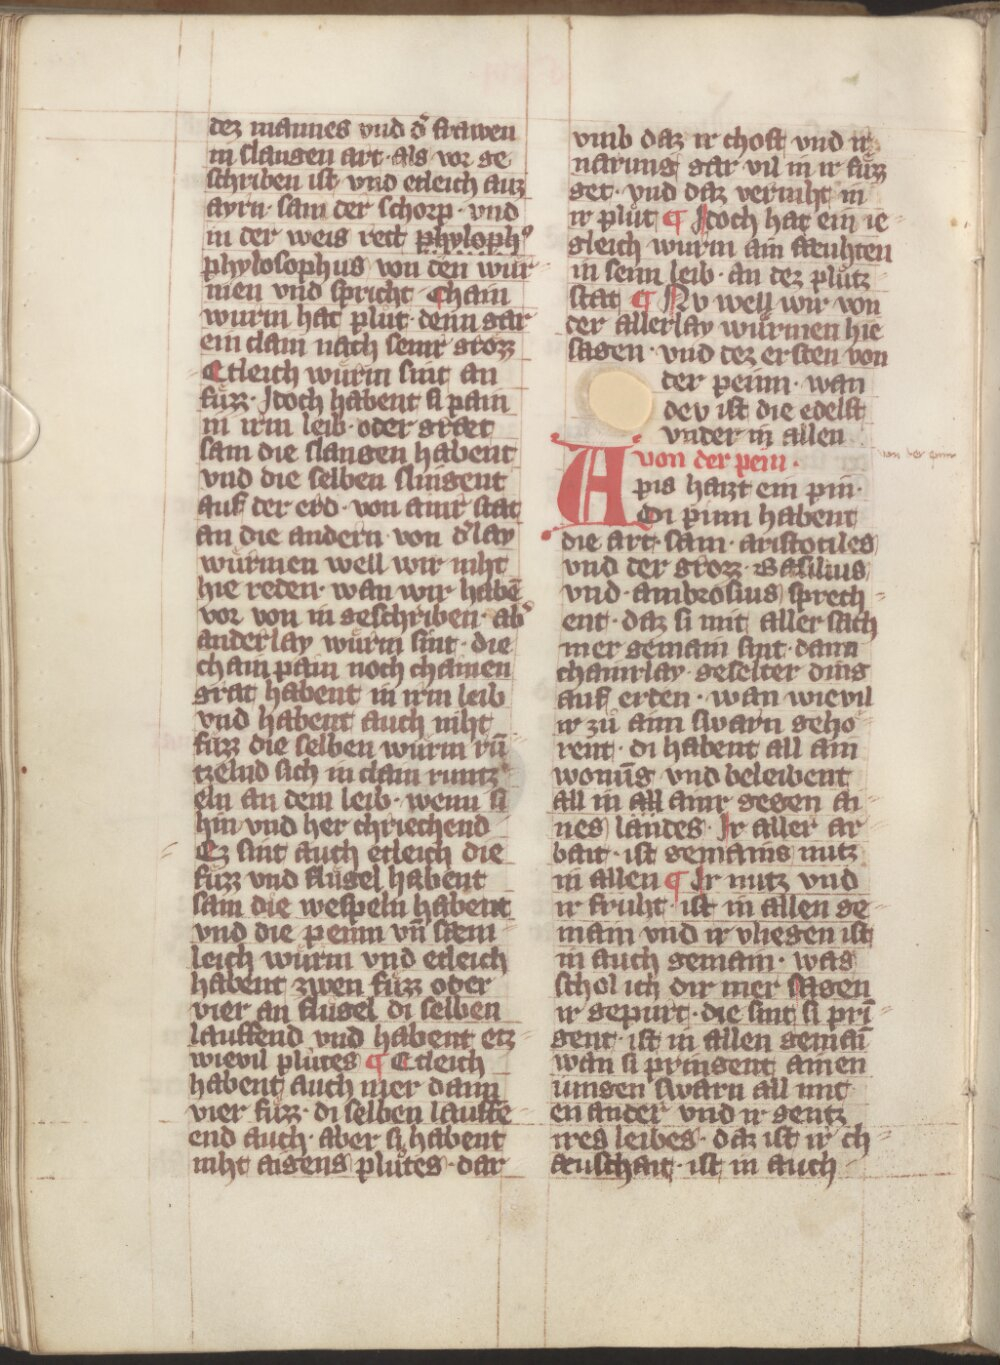 dez mannes vnd d͛ frawen
in slangen art · als vor ge
schriben ist vnd etleich auz
ayrn · sam der schorp · vnd
in der weis rett phyloph᷒
phylosophus von den wür
men vnd spricht Chain
wurm hat plůt · denn gar
ein clain nach seinr grözz
Etleich wu̇rm sint an
fu̇zz · Jdoch habent si pain
in irm leib · oder græt
sam die slangen habent
vnd die selben slingent
auf der erd · von ainr stat
an die andern · von d͛lay
wu̇rmen well wir niht
hie reden · wan wir habē
vor von in geschriben · ab͛
anderlay wu̇rm sint · die
chain pain noch chainen
grat habent in irm leib
vnd habent auch niht
fu̇zz die selben wu̇rm rū
tzelnd sich in clain runtz
eln an dem leib · wenn si
hin vnd her chriechend
Ez sint auch etleich die
fu̇zz vnd flu̇gel habent
sam die wespeln habent
vnd die peinn vn̄ sæm
leich wu̇rm vnd etleich
habent zwen fu̇zz oder
vier an flu̇gel di selben
lauffend vnd habent etz
wievil plůtes ¶ Etleich
habent auch mer dann
vier fu̇zz · di selben lauffē
end auch · aber si habent
niht aigens plůtes · dar
vmb daz ir chost vnd ir
narung gar vil in ir fu̇zz
get · vnd daz verniht in
ir plůt ¶ Jdoch hat ein ie
gleich wurm ain fæuhten
in seim leib · an dez plůtz
stat ¶ Nv well wir von
der allerlay wu̇rmen hie
sagen · vnd dez ersten von
der peinn · wan
dev ist die edelst
vnder in allen
von der pein ·
von der pein
Apis haizt ein pin ·
Di pinn habent
die art · sam · aristotiles
vnd der grozz · Basilius
vnd · ambrosius sprech
ent · daz si mit aller sach
mer gemain sint · dann
chainrlay · geselter ding
auf erden · wan wievil
ir zů aim swarn geho
rent · di habent all ain
wonūg vnd beleibent
all in all ainr gegen ai
nes landes · Ir aller ar
bait · ist gemains nutz
in allen ¶ Ir nutz vnd
ir fruht · ist in allen ge
main vnd ir vliegen ist
in auch gemain · was
schol ich dir mer sagen
ir gepurt · die sint si pri̅
gent · ist in allen gemai̅
wan si pringent ainen
iungen swarn all mit
en ander vnd ir gentz
ires leibes · daz ist ir ch
æuschait · ist in auch